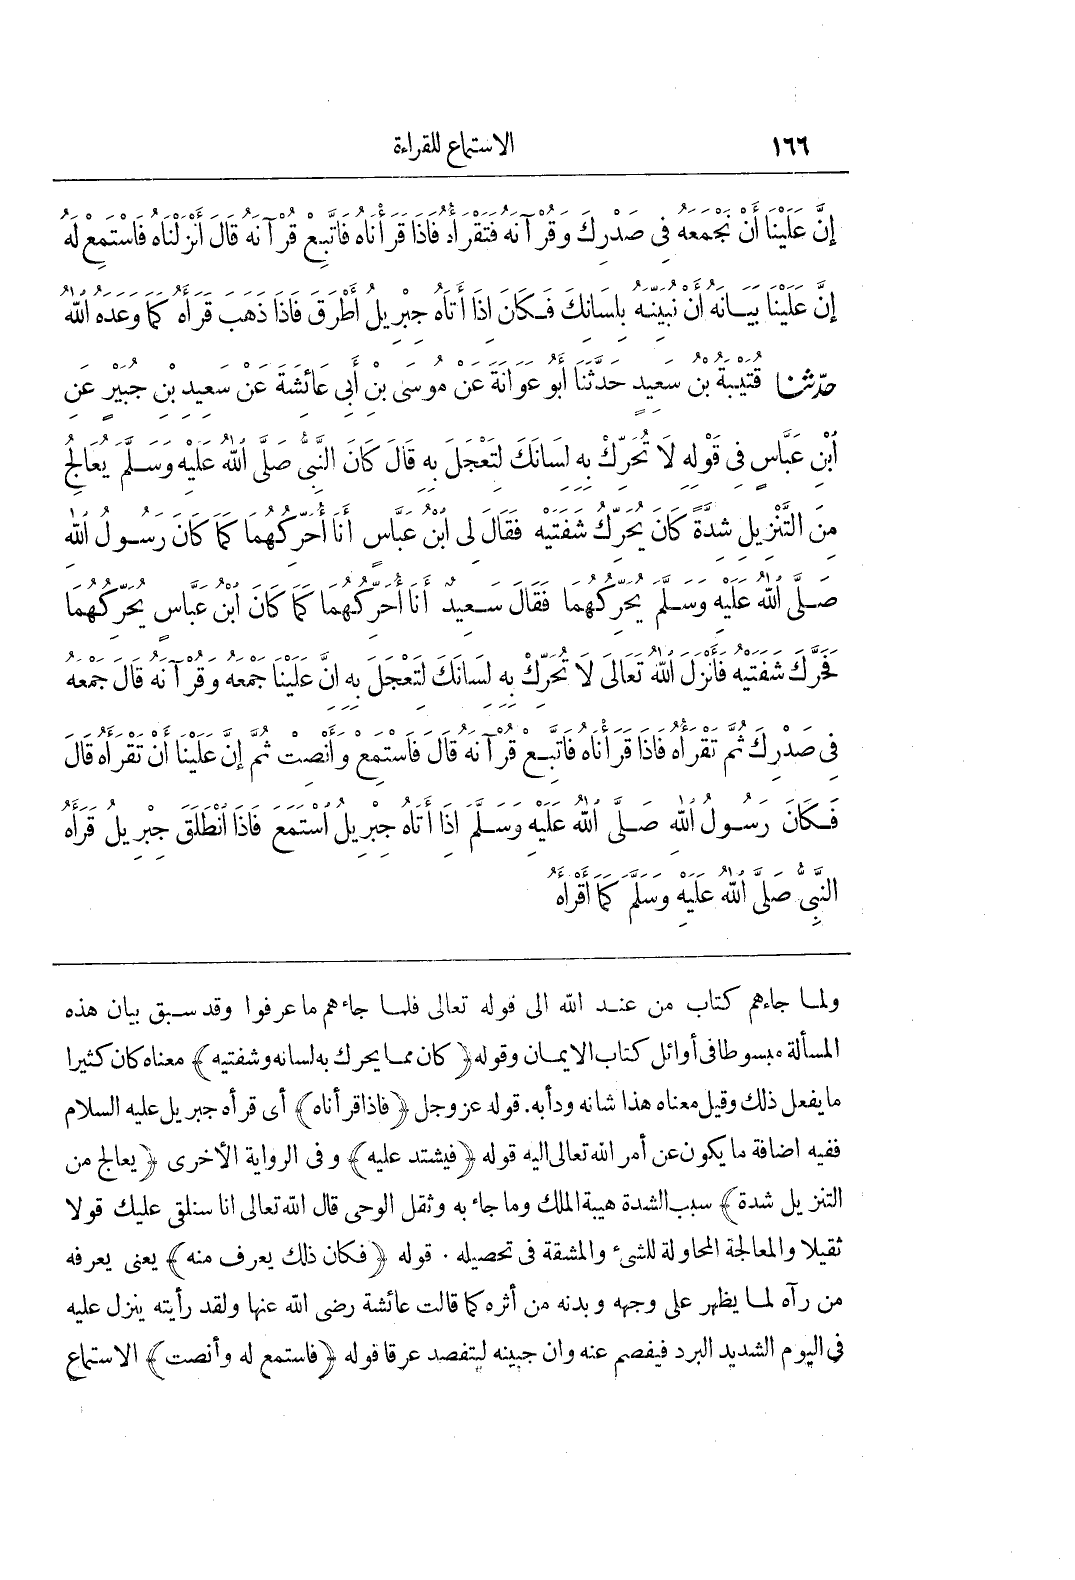 ١٦٦ الاستماع للقراءة
إِنَّ عَلَيْنَا أَنْ نَجْمَعَهُ فِي صَدْرِكَ وَقُرْآنَهُ فَتَقْرَأُهُ فَاذَا قَرَأْنَاهُ فَاتَّبِعْ قُرْآنَهُ قَالَ أَنْزَلْنَاهُ فَاسْتَمِعْ لَهُ
إِنَّ عَلَيْنَا بَيَانَهُ أَنْ نُبَيِّنَهُ بِلِسَانِكَ فَكَانَ اذَا أَتَاهُ جِبْرِيلُ أَطْرَقَ فَاذَا ذَهَبَ قَرَأَهُ كَمَا وَعَدَهُ اللهُ
حدّثنا قُتَيْبَةُ بْنُ سَعِيدٍ حَدَّثَنَا أَبُو عَوَانَةَ عَنْ مُوسَى بْنِ أَبِي عَائِشَةَ عَنْ سَعِيدِ بْنِ جُبَيْرٍ عَنِ
ابْنِ عَبَّاسٍ فِي قَوْلِهِ لَا تُحَرِّكْ بِهِ لِسَانَكَ لِتَعْجَلَ بِهِ قَالَ كَانَ النَّبِيُّ صَلَّى اللهُ عَلَيْهِ وَسَلَّمَ يُعَالِجُ
مِنَ التَّنْزِيلِ شِدَّةً كَانَ يُحَرِّكُ شَفَتَيْهِ فَقَالَ لِي ابْنُ عَبَّاسٍ أَنَا أُحَرِّكُهُمَا كَمَا كَانَ رَسُولُ اللهِ
صَلَّى اللهُ عَلَيْهِ وَسَلَّمَ يُحَرِّكُهُمَا فَقَالَ سَعِيدٌ أَنَا أُحَرِّكُهُمَا كَمَا كَانَ ابْنُ عَبَّاسٍ يُحَرِّكُهُمَا
فَحَرَّكَ شَفَتَيْهِ فَأَنْزَلَ اللهُ تَعَالَى لَا تُحَرِّكْ بِهِ لِسَانَكَ لِتَعْجَلَ بِهِ انَّ عَلَيْنَا جَمْعَهُ وَقُرْآنَهُ قَالَ جَمْعَهُ
فِي صَدْرِكَ ثُمَّ تَقْرَأُهُ فَاذَا قَرَأْنَاهُ فَاتَّبِعْ قُرْآنَهُ قَالَ فَاسْتَمِعْ وَأَنْصِتْ ثُمَّ إِنَّ عَلَيْنَا أَنْ تَقْرَأَهُ قَالَ
فَكَانَ رَسُولُ اللهِ صَلَّى اللهُ عَلَيْهِ وَسَلَّمَ اذَا أَتَاهُ جِبْرِيلُ اسْتَمَعَ فَاذَا انْطَلَقَ جِبْرِيلُ قَرَأَهُ
النَّبِيُّ صَلَّى اللهُ عَلَيْهِ وَسَلَّمَ كَمَا أَقْرَأَهُ
ولما جاءهم كتاب من عند الله الى قوله تعالى فلما جاءهم ما عرفوا وقد سبق بيان هذه
المسألة مبسوطا فى أوائل كتاب الايمان وقوله ﴿كان مما يحرك به لسانه وشفتيه﴾ معناه كان كثيرا
ما يفعل ذلك وقيل معناه هذا شانه ودأبه. قوله عز وجل ﴿فاذا قرأناه﴾ أى قرأه جبريل عليه السلام
ففيه اضافة ما يكون عن أمر الله تعالى اليه قوله ﴿فيشتد عليه﴾ وفى الرواية الأخرى ﴿يعالج من
التنزيل شدة﴾ سبب الشدة هيبة الملك وما جاء به وثقل الوحى قال الله تعالى انا سنلقى عليك قولا
ثقيلا والمعالجة المحاولة للشىء والمشقة فى تحصيله. قوله ﴿فكان ذلك يعرف منه﴾ يعنى يعرفه
من رآه لما يظهر على وجهه وبدنه من أثره كما قالت عائشة رضى الله عنها ولقد رأيته ينزل عليه
فى اليوم الشديد البرد فيفصم عنه وان جبينه ليتفصد عرقا قوله ﴿فاستمع له وأنصت﴾ الاستماع